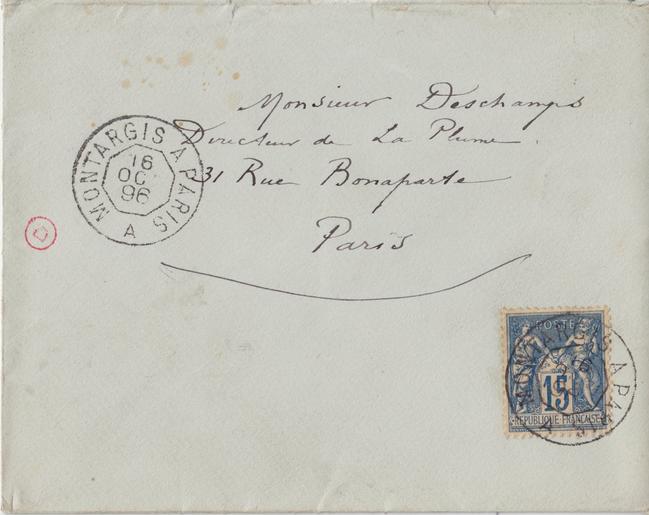 Monsieur Deschamps
Directeur de La Plume.
31 Rue Bonaparte
Paris
MONTARGIS A PARIS
16
OC
96
A
POSTE
15
REPUBLIQUE FRANÇAISE
MONTARGIS A PARIS
96
A